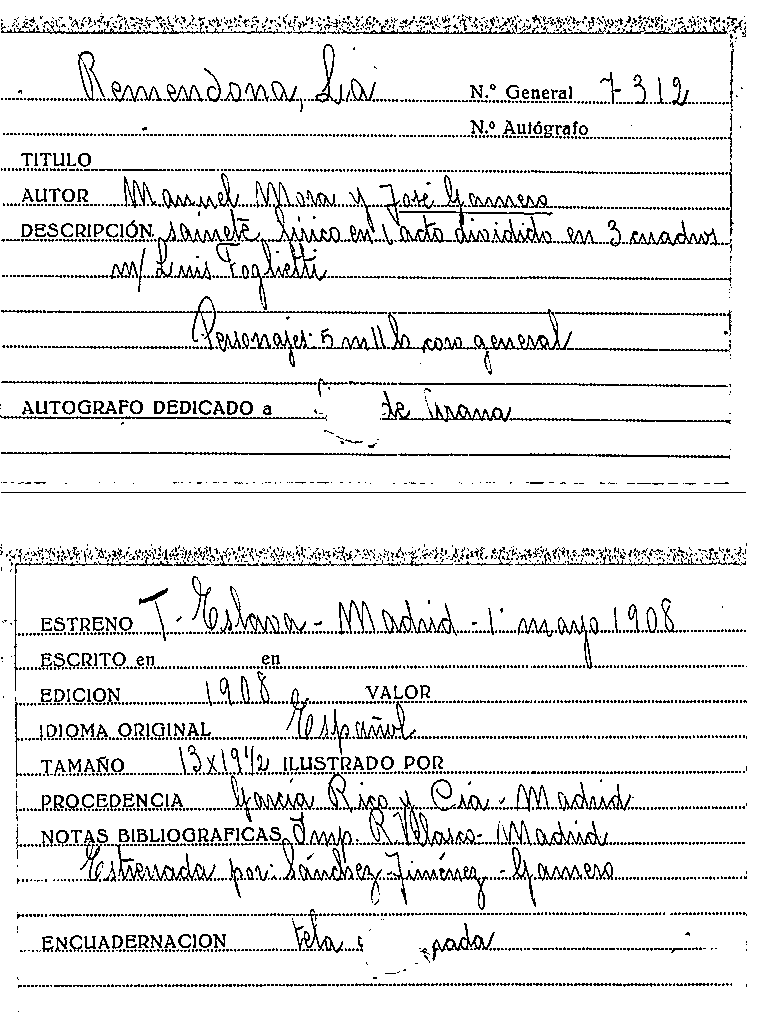 Remendona, La
N.º General 7312
N.º Autógrafo
TITULO
AUTOR Manuel Mora y José Gamero
DESCRIPCIÓN sainete lírico en 1 acto dividido en 3 cuadros
m/ Luis Foglietti
Personajes: 5 m 11 h coro general
AUTOGRAFO DEDICADO a de Arana
ESTRENO T. Eslava - Madrid - 1º mayo 1908
ESCRITO en en
EDICION 1908 VALOR
IDIOMA ORIGINAL Español
TAMAÑO 13x19½ ILUSTRADO POR
PROCEDENCIA García Rico y Cía - Madrid
NOTAS BIBLIOGRAFICAS Imp. R. Velasco - Madrid
Estrenada por: Sánchez-Jiménez - Gamero
ENCUADERNACION tela